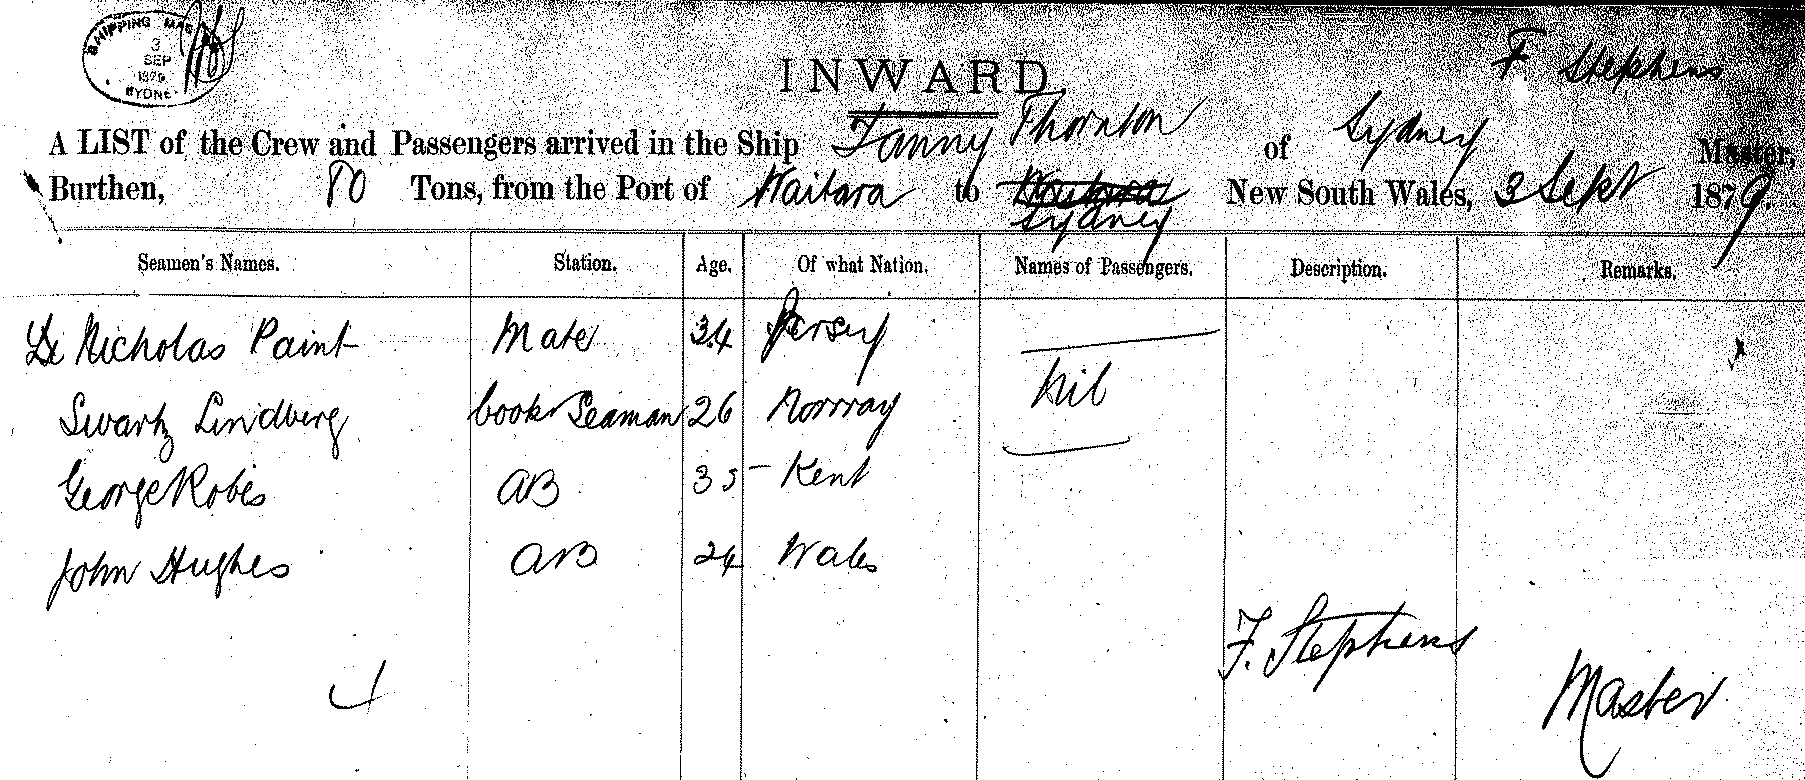 SHIPPING MAS
3
SEP
1879
SYDNEY
F. Stephens
INWARD.
A LIST of the Crew and Passengers arrived in the Ship Fanny Thornton of Sydney Master,
Burthen, 80 Tons, from the Port of Waitara to Waitara Sydney New South Wales, 3 Sept 1879.
Seamen's Names. Station. Age. Of what Nation. Names of Passengers. Description. Remarks.
Nicholas Paint Mate 34 Jersey
Swartz Lindberg Cook Seaman 26 Norway Nil
George Robes AB 35 Kent
John Hughes AB 24 Wales
F. Stephens
4
Master